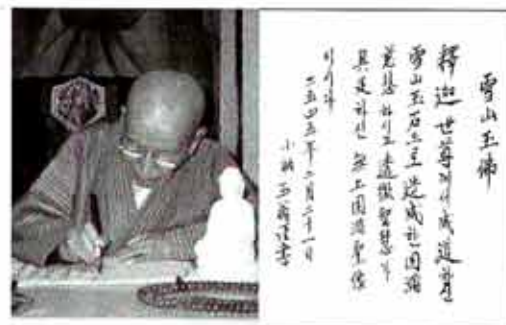 雪山玉佛
釋迦世尊께서 成道하신
雪山玉石으로 造成하신 圓滿
慈悲하시고 透徹 智慧가
具足하신 無上 圓滿 聖像
이시다
二五四五年 二月 二十一日
小林